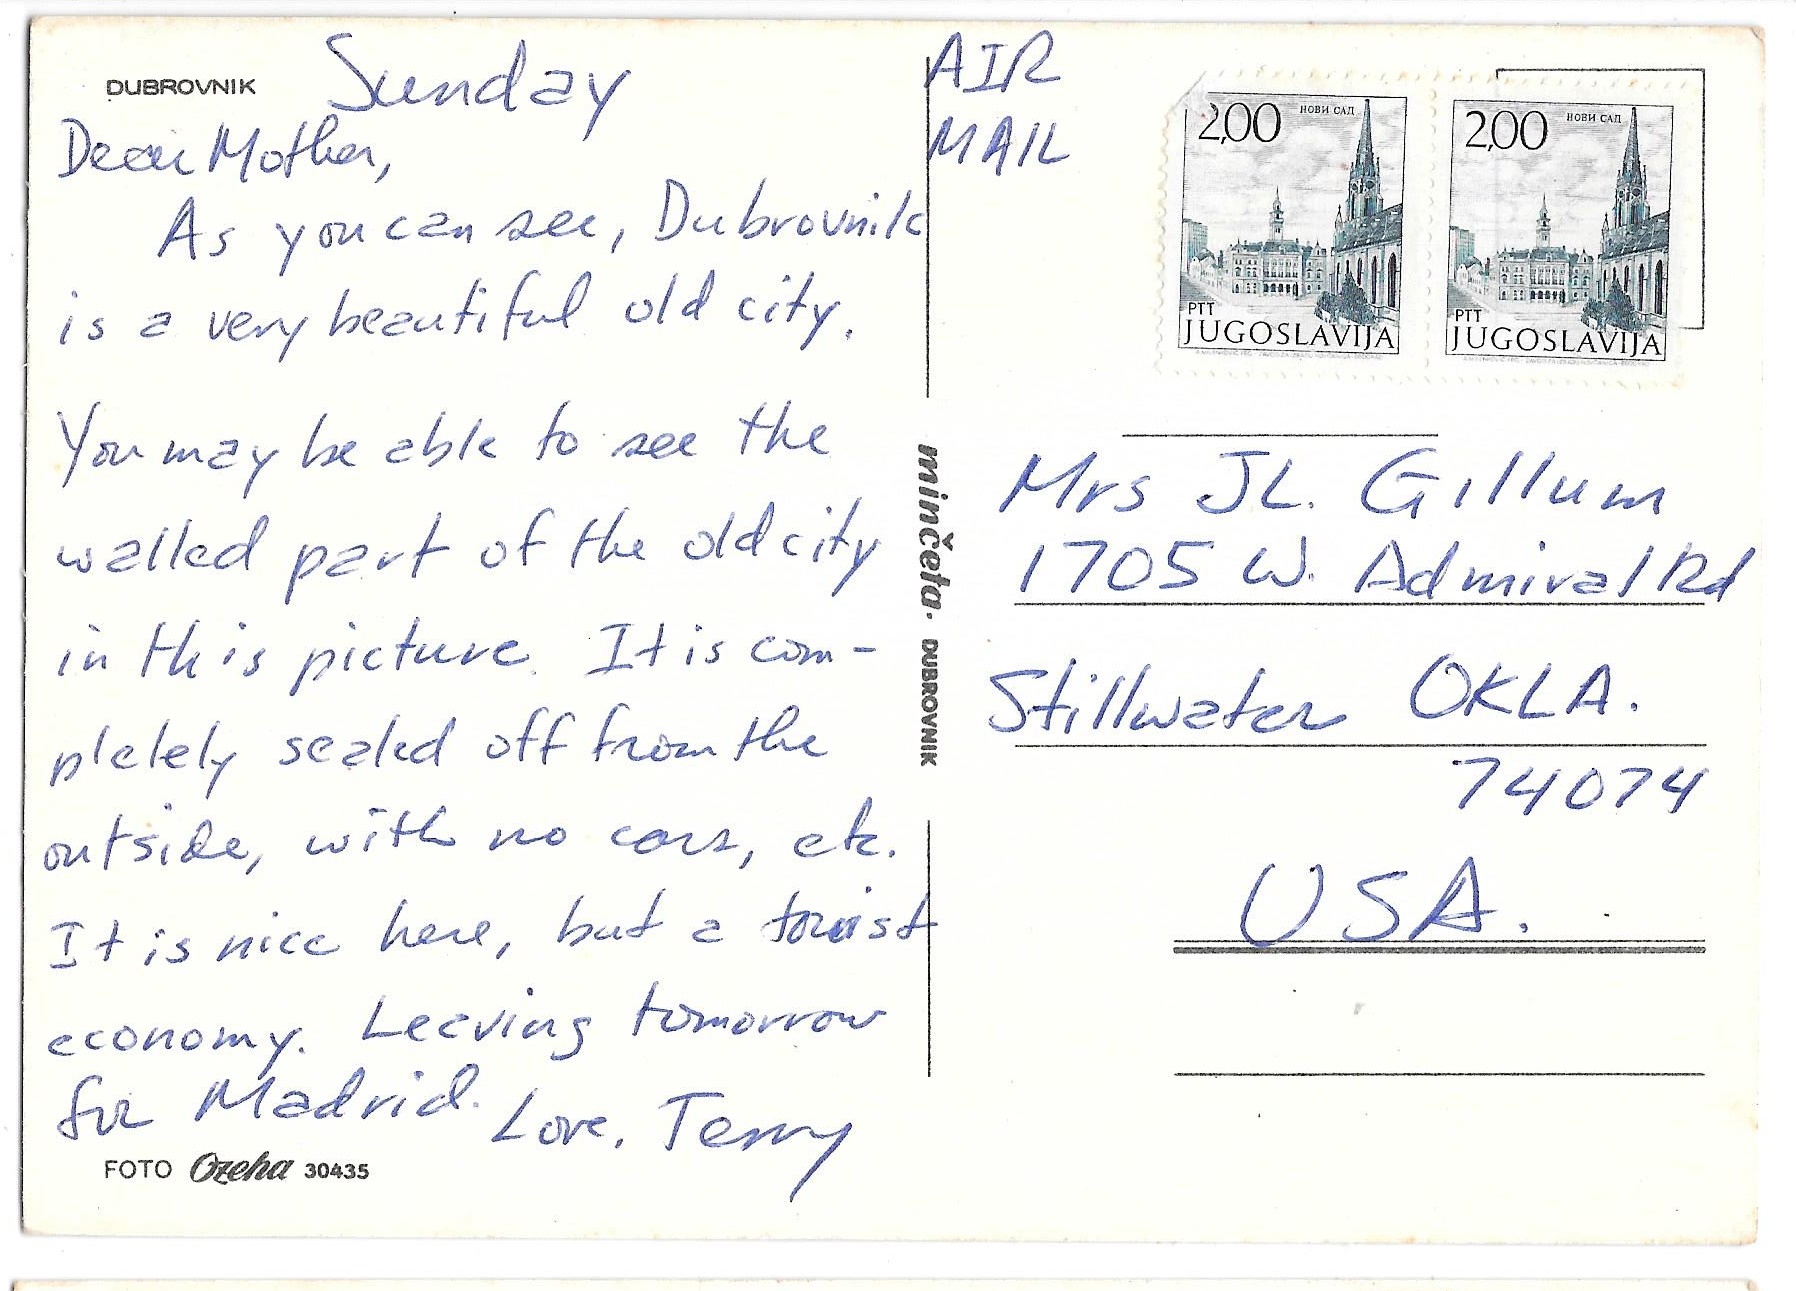 DUBROVNIK
Sunday
Dear Mother,
As you can see, Dubrovnik
is a very beautiful old city.
You may be able to see the
walled part of the old city
in this picture. It is com-
pletely sealed off from the
outside, with no cars, etc.
It is nice here, but a tourist
economy. Leaving tomorrow
for Madrid. Love, Terry
FOTO Ozeha 30435
minčeta · DUBROVNIK
AIR
MAIL
2,00 НОВИ САД
PTT
JUGOSLAVIJA
2,00 НОВИ САД
PTT
JUGOSLAVIJA
Mrs JL. Gillum
1705 W. Admiral Rd
Stillwater OKLA.
74074
USA.